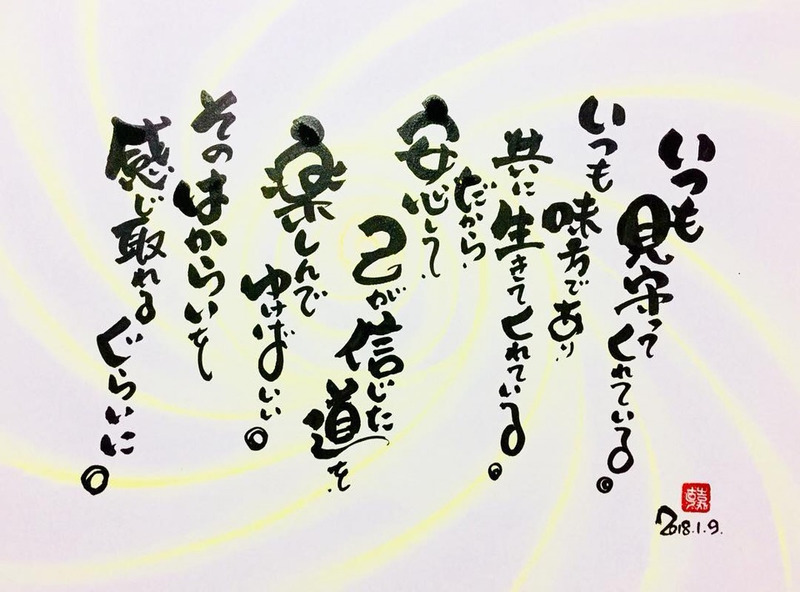 いつも
見守って
くれている。
いつも
味方であり
共に
生きて
くれている。
だから
安心して
己が
信じた
道を
楽しんで
ゆけばいい。
そのはからいを
感じ取れる
ぐらいに。
2018.1.9.